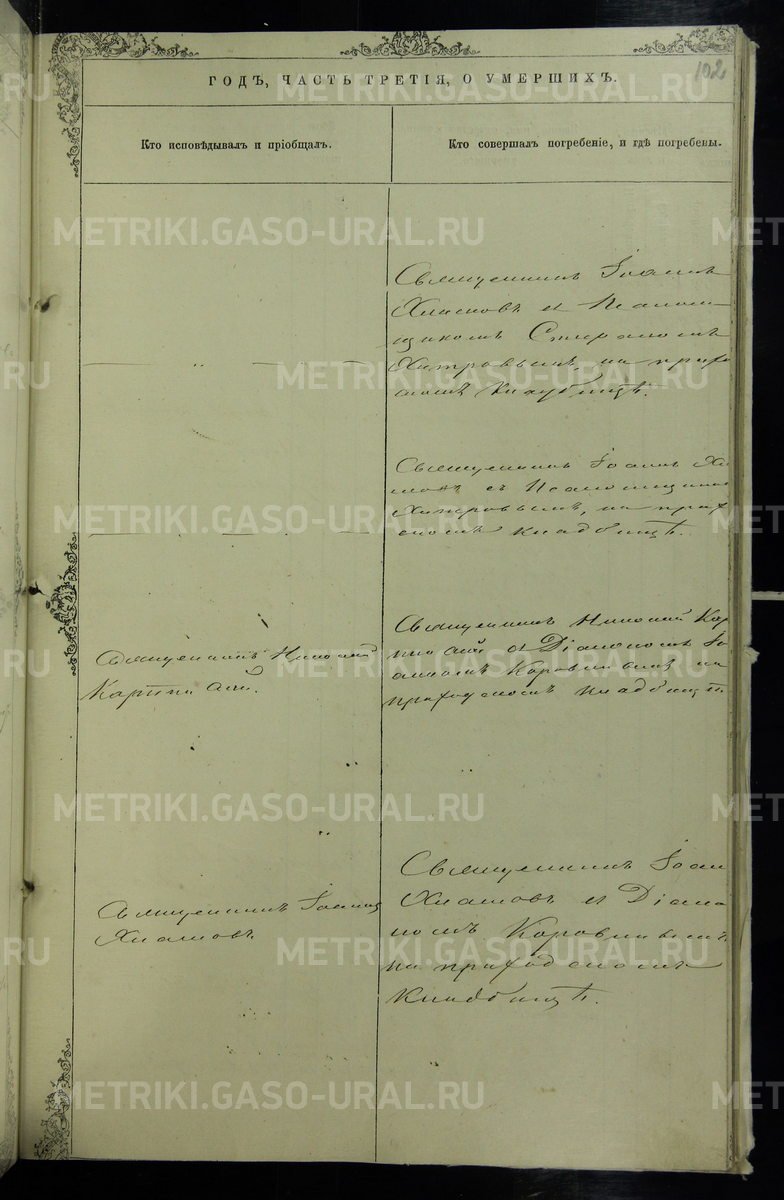 102
ГОДЪ, ЧАСТЬ ТРЕТІЯ, О УМЕРШИХЪ.
Кто исповѣдывалъ и пріобщалъ.
Кто совершалъ погребеніе, и гдѣ погребены.
Священникъ Іоаннъ
Хламовъ съ Псаломщикомъ
Хитровымъ, на прихо
скомъ кладбищѣ.
Священникъ Іоаннъ
съ Псаломщикомъ
Хитровымъ, на приход
скомъ кладбищѣ.
Священникъ Николай
Священникъ Николай
съ Діакономъ Іо
анномъ Коровинымъ на
приходскомъ кладбищѣ
Священникъ Іоаннъ
Хламовъ
Священникъ Іоан
Хламовъ съ Діако
номъ Коровинымъ
на приходскомъ
кладбищѣ.
METRIKI.GASO-URAL.RU